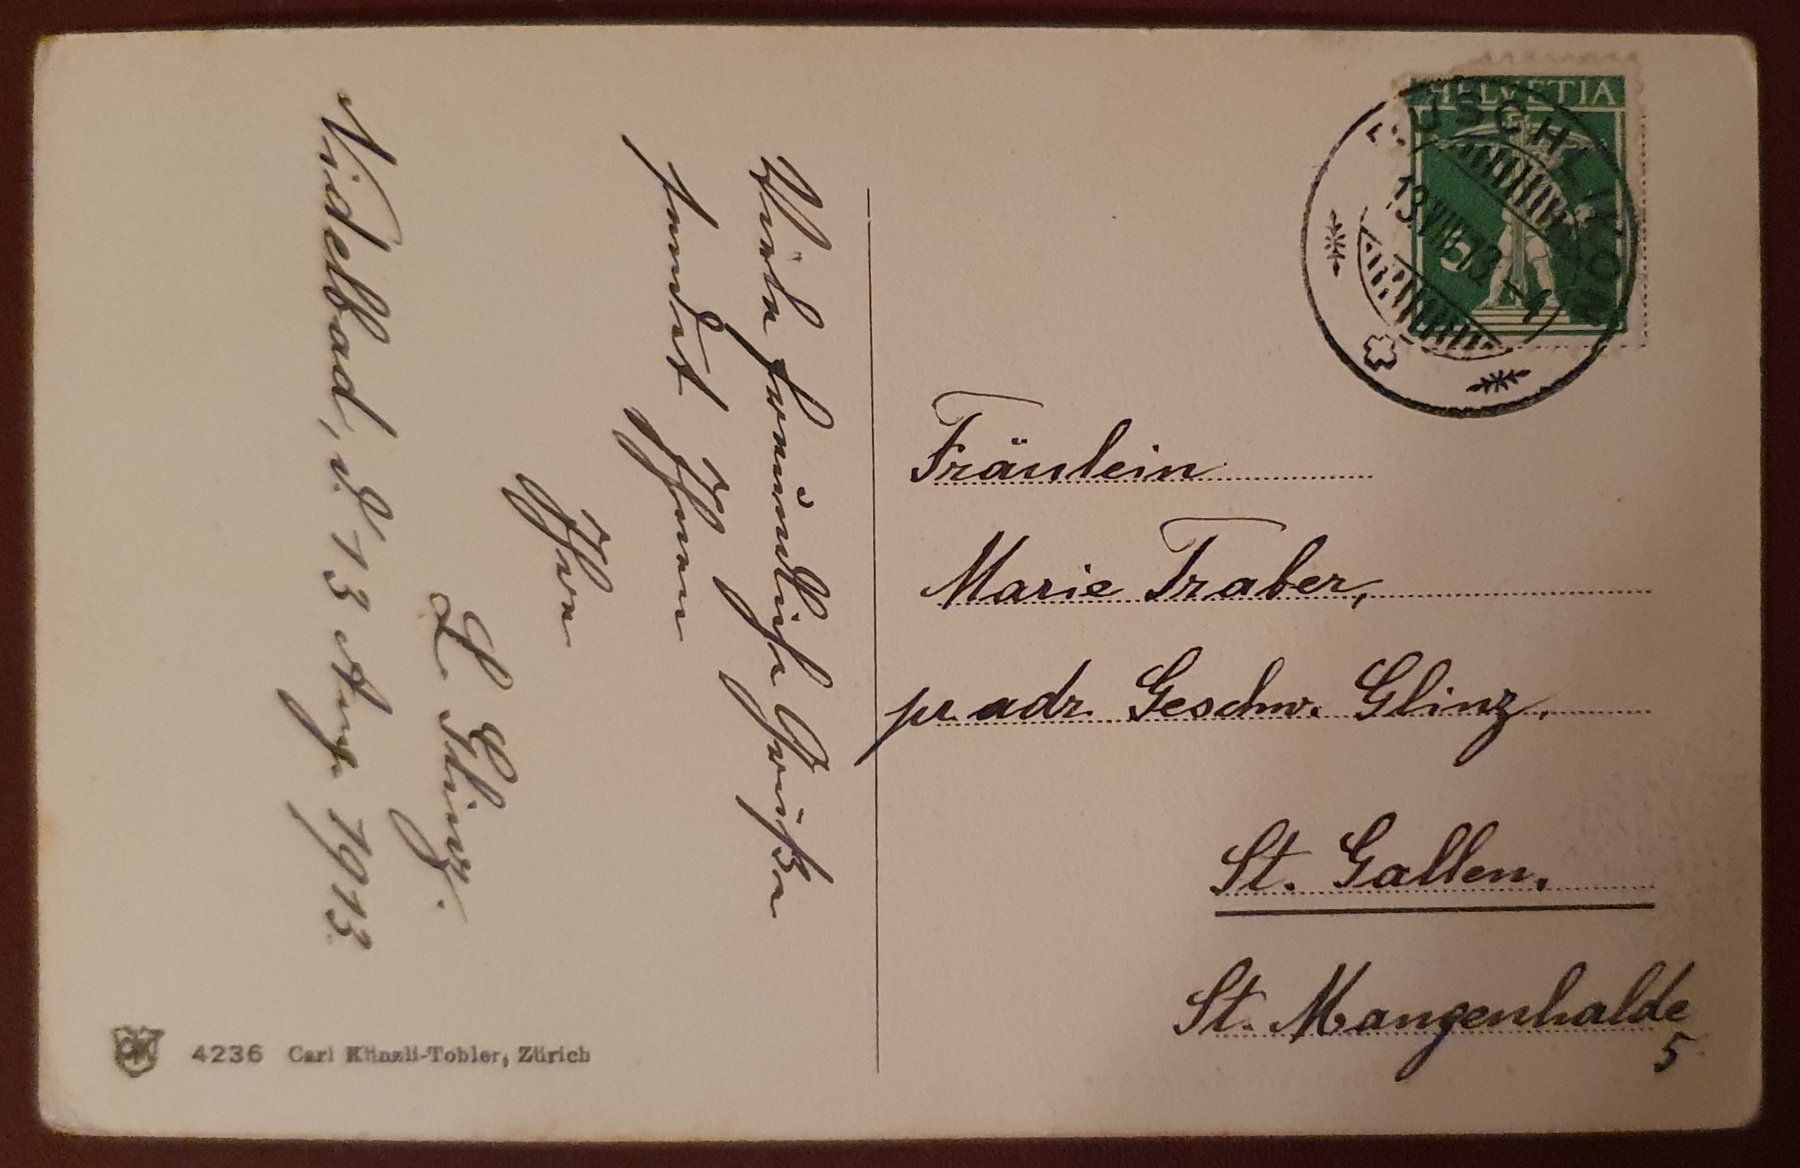 Viele freundliche Grüße
sendet Ihnen
Ihre
L. Glinz.
Nidelbad, d. 13 Aug. 1913
HELVETIA
5
RÜSCHLIKON
13.VIII.13.-4
Fräulein
Marie Traber,
pr adr. Geschw. Glinz.
St. Gallen.
St. Mangenhalde
5.
4236 Carl Künzli-Tobler, Zürich